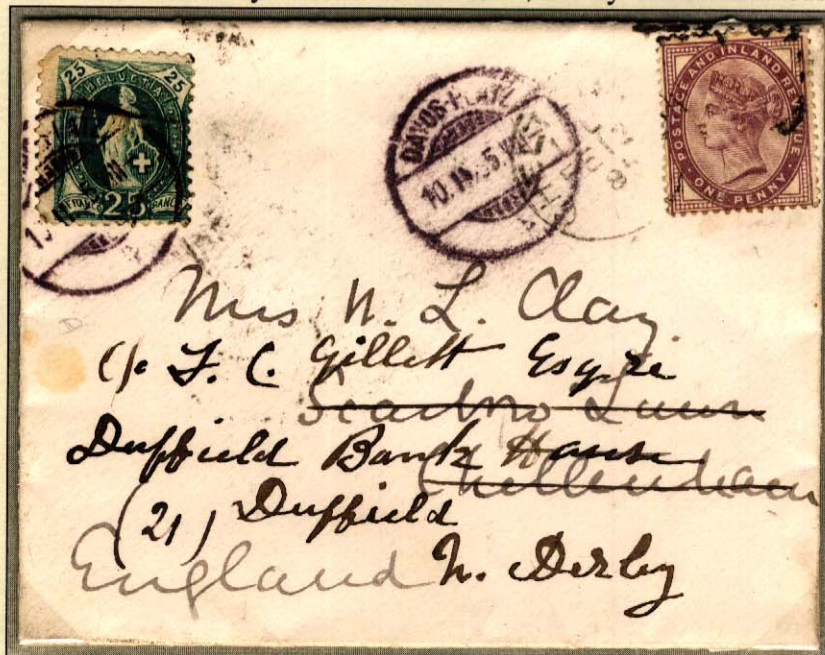 25 25
HELVETIA
FRANCO 25 FRANCO
DAVOS-PLATZ
POSTAGE AND INLAND REVENUE
ONE PENNY
Mrs N. L. Clay
c/o F. C. Gillett Esqre
Lawn
Duffield Bank House
Cheltenham
(21) Duffield
England N. Derby